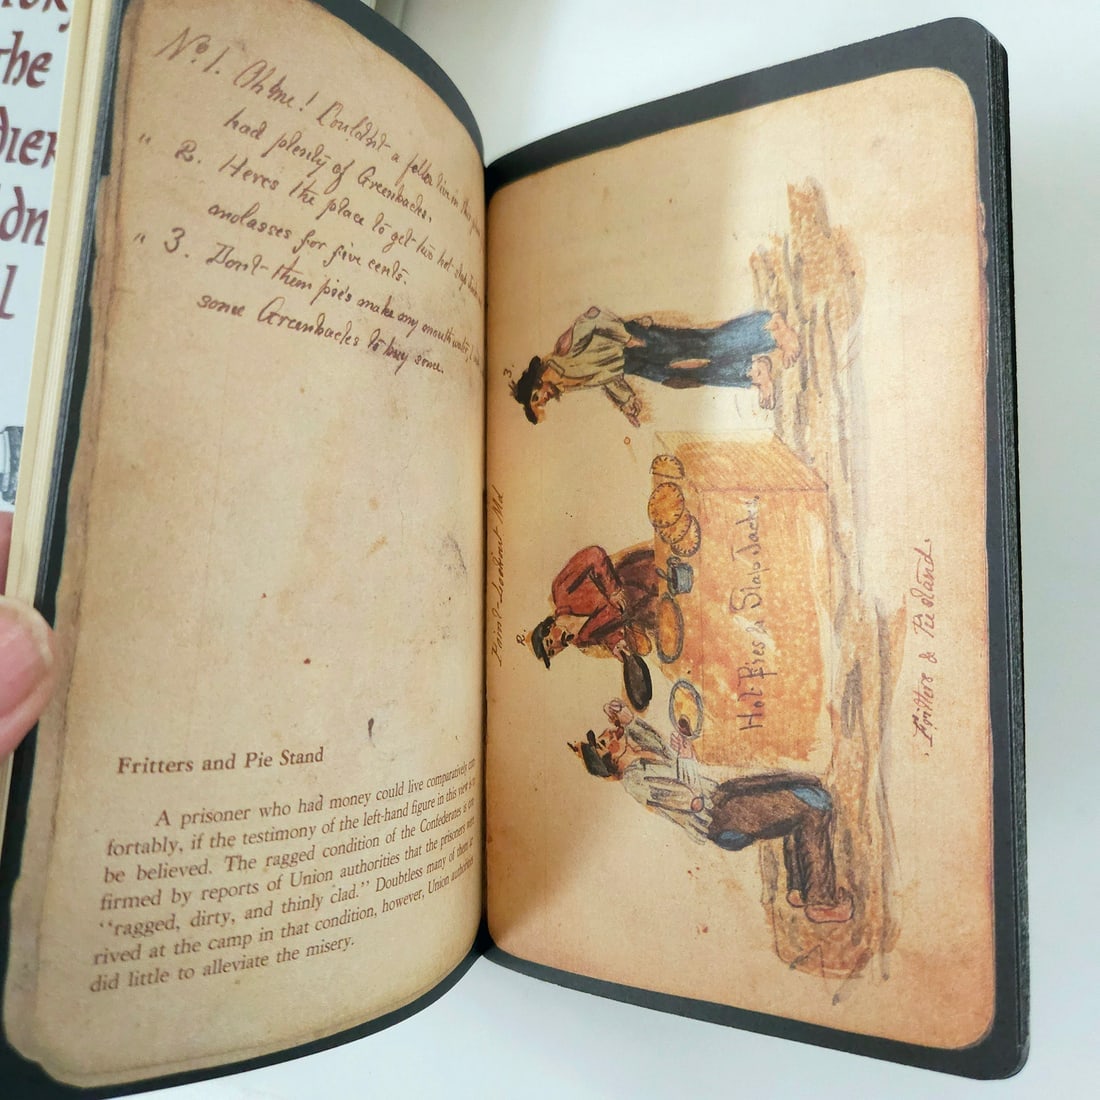 the
No. 1. Oh me! Couldn't a feller live in
had plenty of Greenbacks.
" 2. Heres the place to get two hot slap Jacks
molasses for five cents.
" 3. Don't them pie's make my mouth water,
some Greenbacks to buy some.
Fritters and Pie Stand
A prisoner who had money could live comparatively com
fortably, if the testimony of the left-hand figure in this view is to
be believed. The ragged condition of the Confederates is con
firmed by reports of Union authorities that the prisoners were
"ragged, dirty, and thinly clad." Doubtless many of them ar
rived at the camp in that condition, however, Union authorities
did little to alleviate the misery.
Point-Lookout Md.
3.
2.
Hot Pies & Slap Jacks.
Fritters & Pie stand.